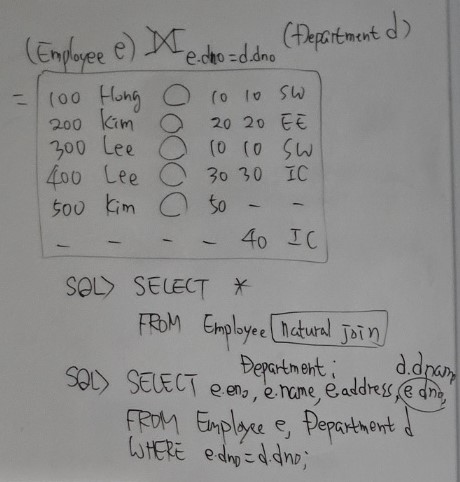 (Employee e) ⟗ e.dno=d.dno (Department d)
= 100 Hong ○ 10 10 SW
200 Kim ○ 20 20 EE
300 Lee ○ 10 10 SW
400 Lee ○ 30 30 IC
500 Kim ○ 50 - -
- - - - 40 IC
SQL> SELECT *
FROM Employee natural join
Department;
d.dname
SQL> SELECT e.eno, e.name, e.address, e.dno,
FROM Employee e, Department d
WHERE e.dno=d.dno;